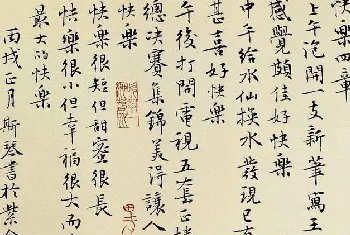 快樂四章
上午泡開一支新筆寫王
感覺頗佳好快樂
中午給水仙換水發現已
甚喜好快樂
午後打開電視五套正
總決賽集錦美得讓人
快樂
快樂很短但甜蜜很長
快樂很小但幸福很大而
最大的快樂
丙戌正月斯琴書於紫